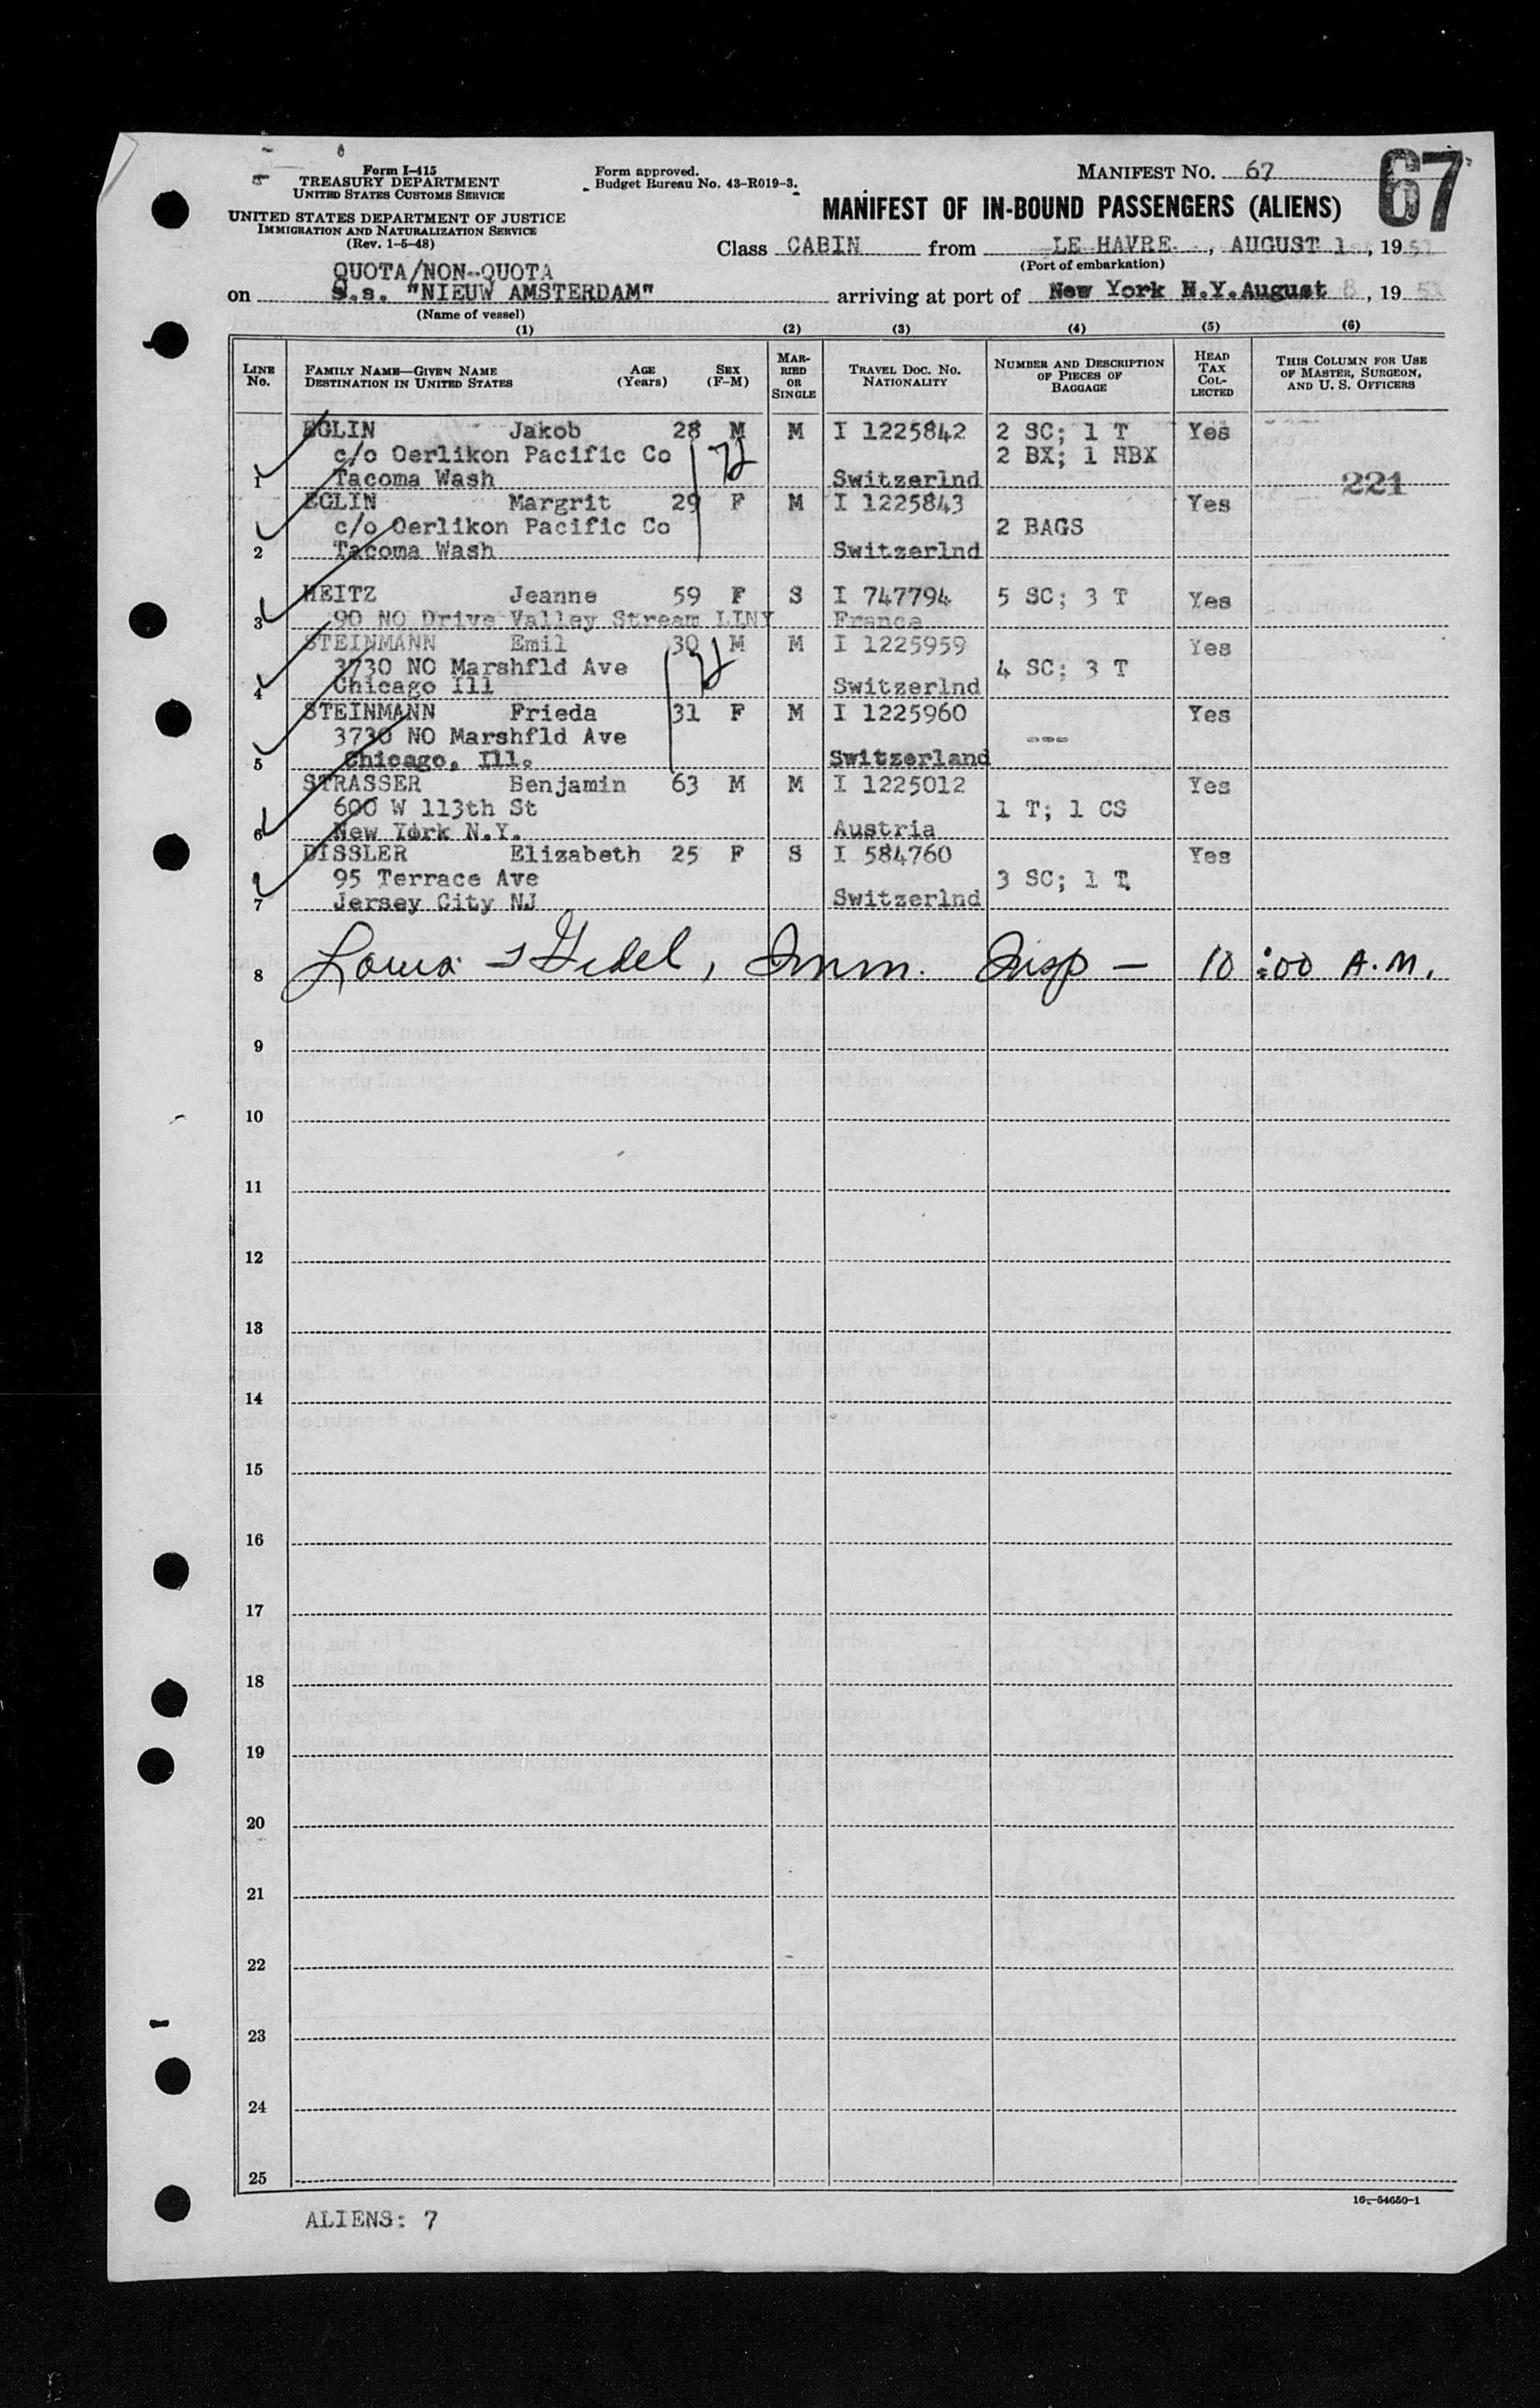 Form I-415
TREASURY DEPARTMENT
UNITED STATES CUSTOMS SERVICE
UNITED STATES DEPARTMENT OF JUSTICE
IMMIGRATION AND NATURALIZATION SERVICE
(Rev. 1-5-48)
Form approved.
Budget Bureau No. 43-R019-3.
MANIFEST NO. 67
67
MANIFEST OF IN-BOUND PASSENGERS (ALIENS)
Class CABIN from LE HAVRE, AUGUST 1, 1951
(Port of embarkation)
QUOTA/NON-QUOTA
on S.s. "NIEUW AMSTERDAM" arriving at port of New York N.Y. August 8, 1951
(Name of vessel)
(1) (2) (3) (4) (5) (6)
LINE No. FAMILY NAME—GIVEN NAME DESTINATION IN UNITED STATES AGE (Years) SEX (F-M) MARRIED OR SINGLE TRAVEL DOC. NO. NATIONALITY NUMBER AND DESCRIPTION OF PIECES OF BAGGAGE HEAD TAX COLLECTED THIS COLUMN FOR USE OF MASTER, SURGEON, AND U. S. OFFICERS
EGLIN Jakob 28 M M I 1225842 2 SC; 1 T Yes
c/o Oerlikon Pacific Co 2 BX; 1 HBX
1 Tacoma Wash Switzerlnd 221
EGLIN Margrit 29 F M I 1225843 Yes
c/o Oerlikon Pacific Co 2 BAGS
2 Tacoma Wash Switzerlnd
HEITZ Jeanne 59 F S I 747794 5 SC; 3 T Yes
3 90 NO Drive Valley Stream LINY France
STEINMANN Emil 30 M M I 1225959 Yes
3730 NO Marshfld Ave 4 SC; 3 T
4 Chicago Ill Switzerlnd
STEINMANN Frieda 31 F M I 1225960 Yes
3730 NO Marshfld Ave ---
5 Chicago, Ill. Switzerland
STRASSER Benjamin 63 M M I 1225012 Yes
600 W 113th St 1 T; 1 CS
6 New York N.Y. Austria
DISSLER Elizabeth 25 F S I 584760 Yes
95 Terrace Ave 3 SC; 1 T
7 Jersey City NJ Switzerlnd
8 Imm. Insp — 10:00 A.M.
9
10
11
12
13
14
15
16
17
18
19
20
21
22
23
24
25
16—54650-1
ALIENS: 7